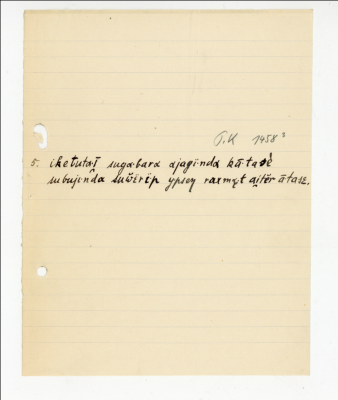 T.K 1458³
5. iketutaī sugabara ajaginda kūtasė
subujinda suwĕrĕp ypsen raxmęt ajtĕr ātase.